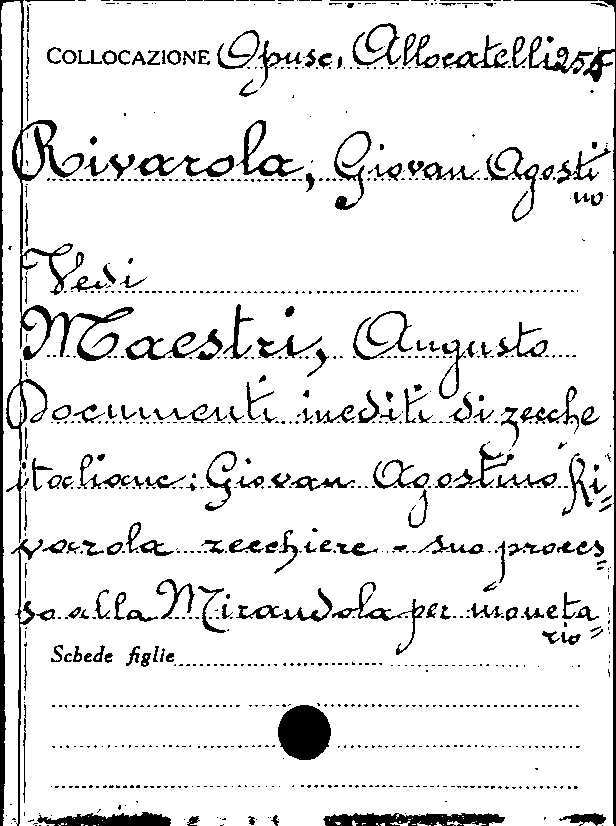 COLLOCAZIONE Opusc. Allocatelli 255
Rivarola, Giovan Agosti
no
Vedi
Maestri, Augusto
Documenti inediti di zecche
italiane: Giovan Agostino Ri=
varola zecchiere - suo proces=
so alla Mirandola per moneta
rio=
Schede figlie